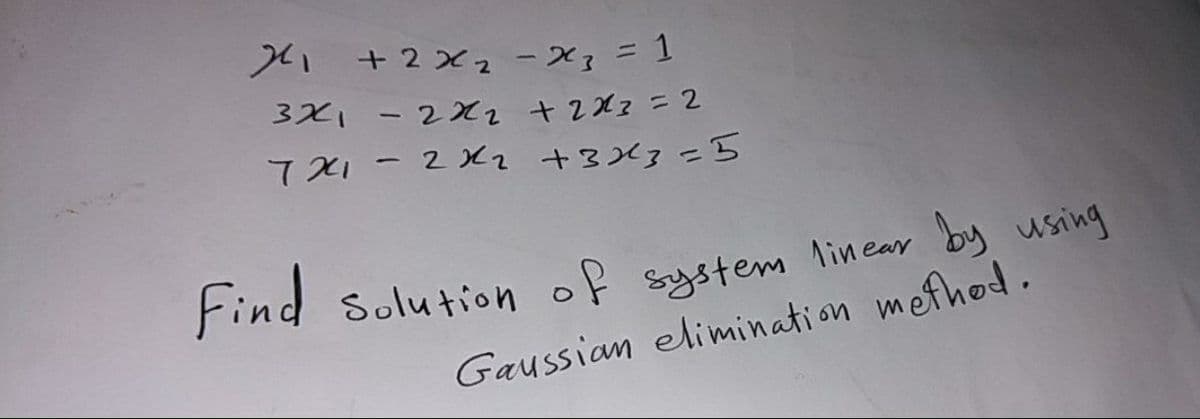 x₁ + 2x₂ - x₃ = 1
3x₁ - 2x₂ + 2x₃ = 2
7x₁ - 2x₂ + 3x₃ = 5
Find Solution of system linear by using
Gaussian elimination method.